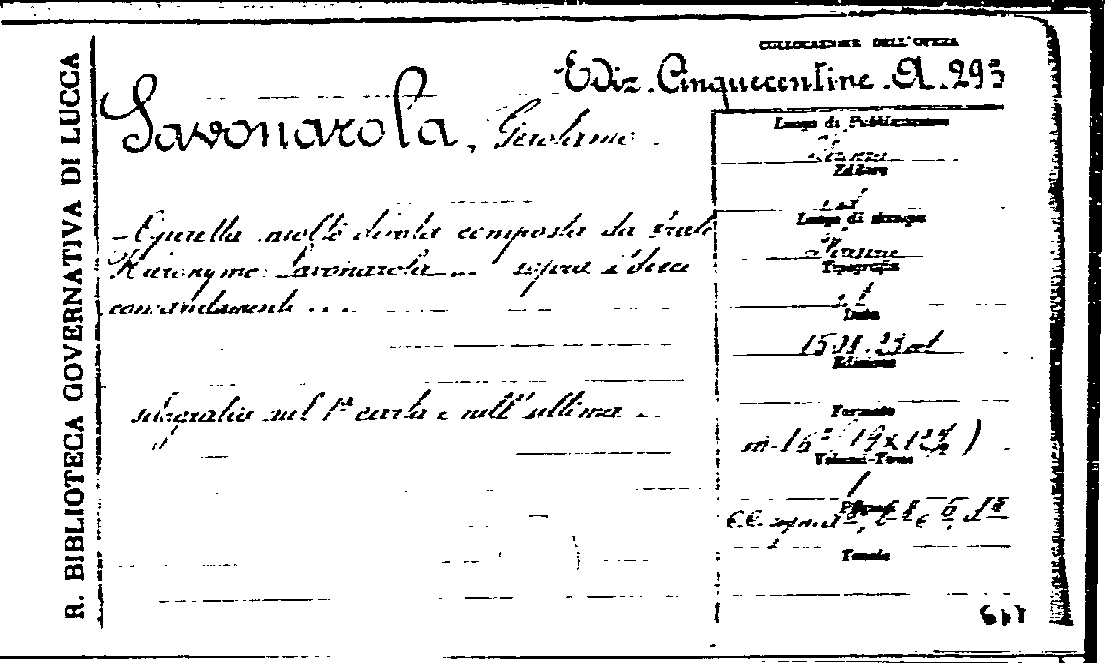 R. BIBLIOTECA GOVERNATIVA DI LUCCA
COLLOCAZIONE DELL'OPERA
Ediz. Cinquecentine. A. 295
Savonarola, Girolamo.
Operetta molto divota composta da frate
Hieronymo Savonarola ... sopra i dieci
comandamenti ...
silografie nel 1ª carta e nell'ultima
Luogo di Pubblicazione
Firenze
Editore
Luogo di stampa
Firenze
Tipografia
Data
23 ott
Edizione
Formato
in-16º
Volumi-Tomo
1
Tavole